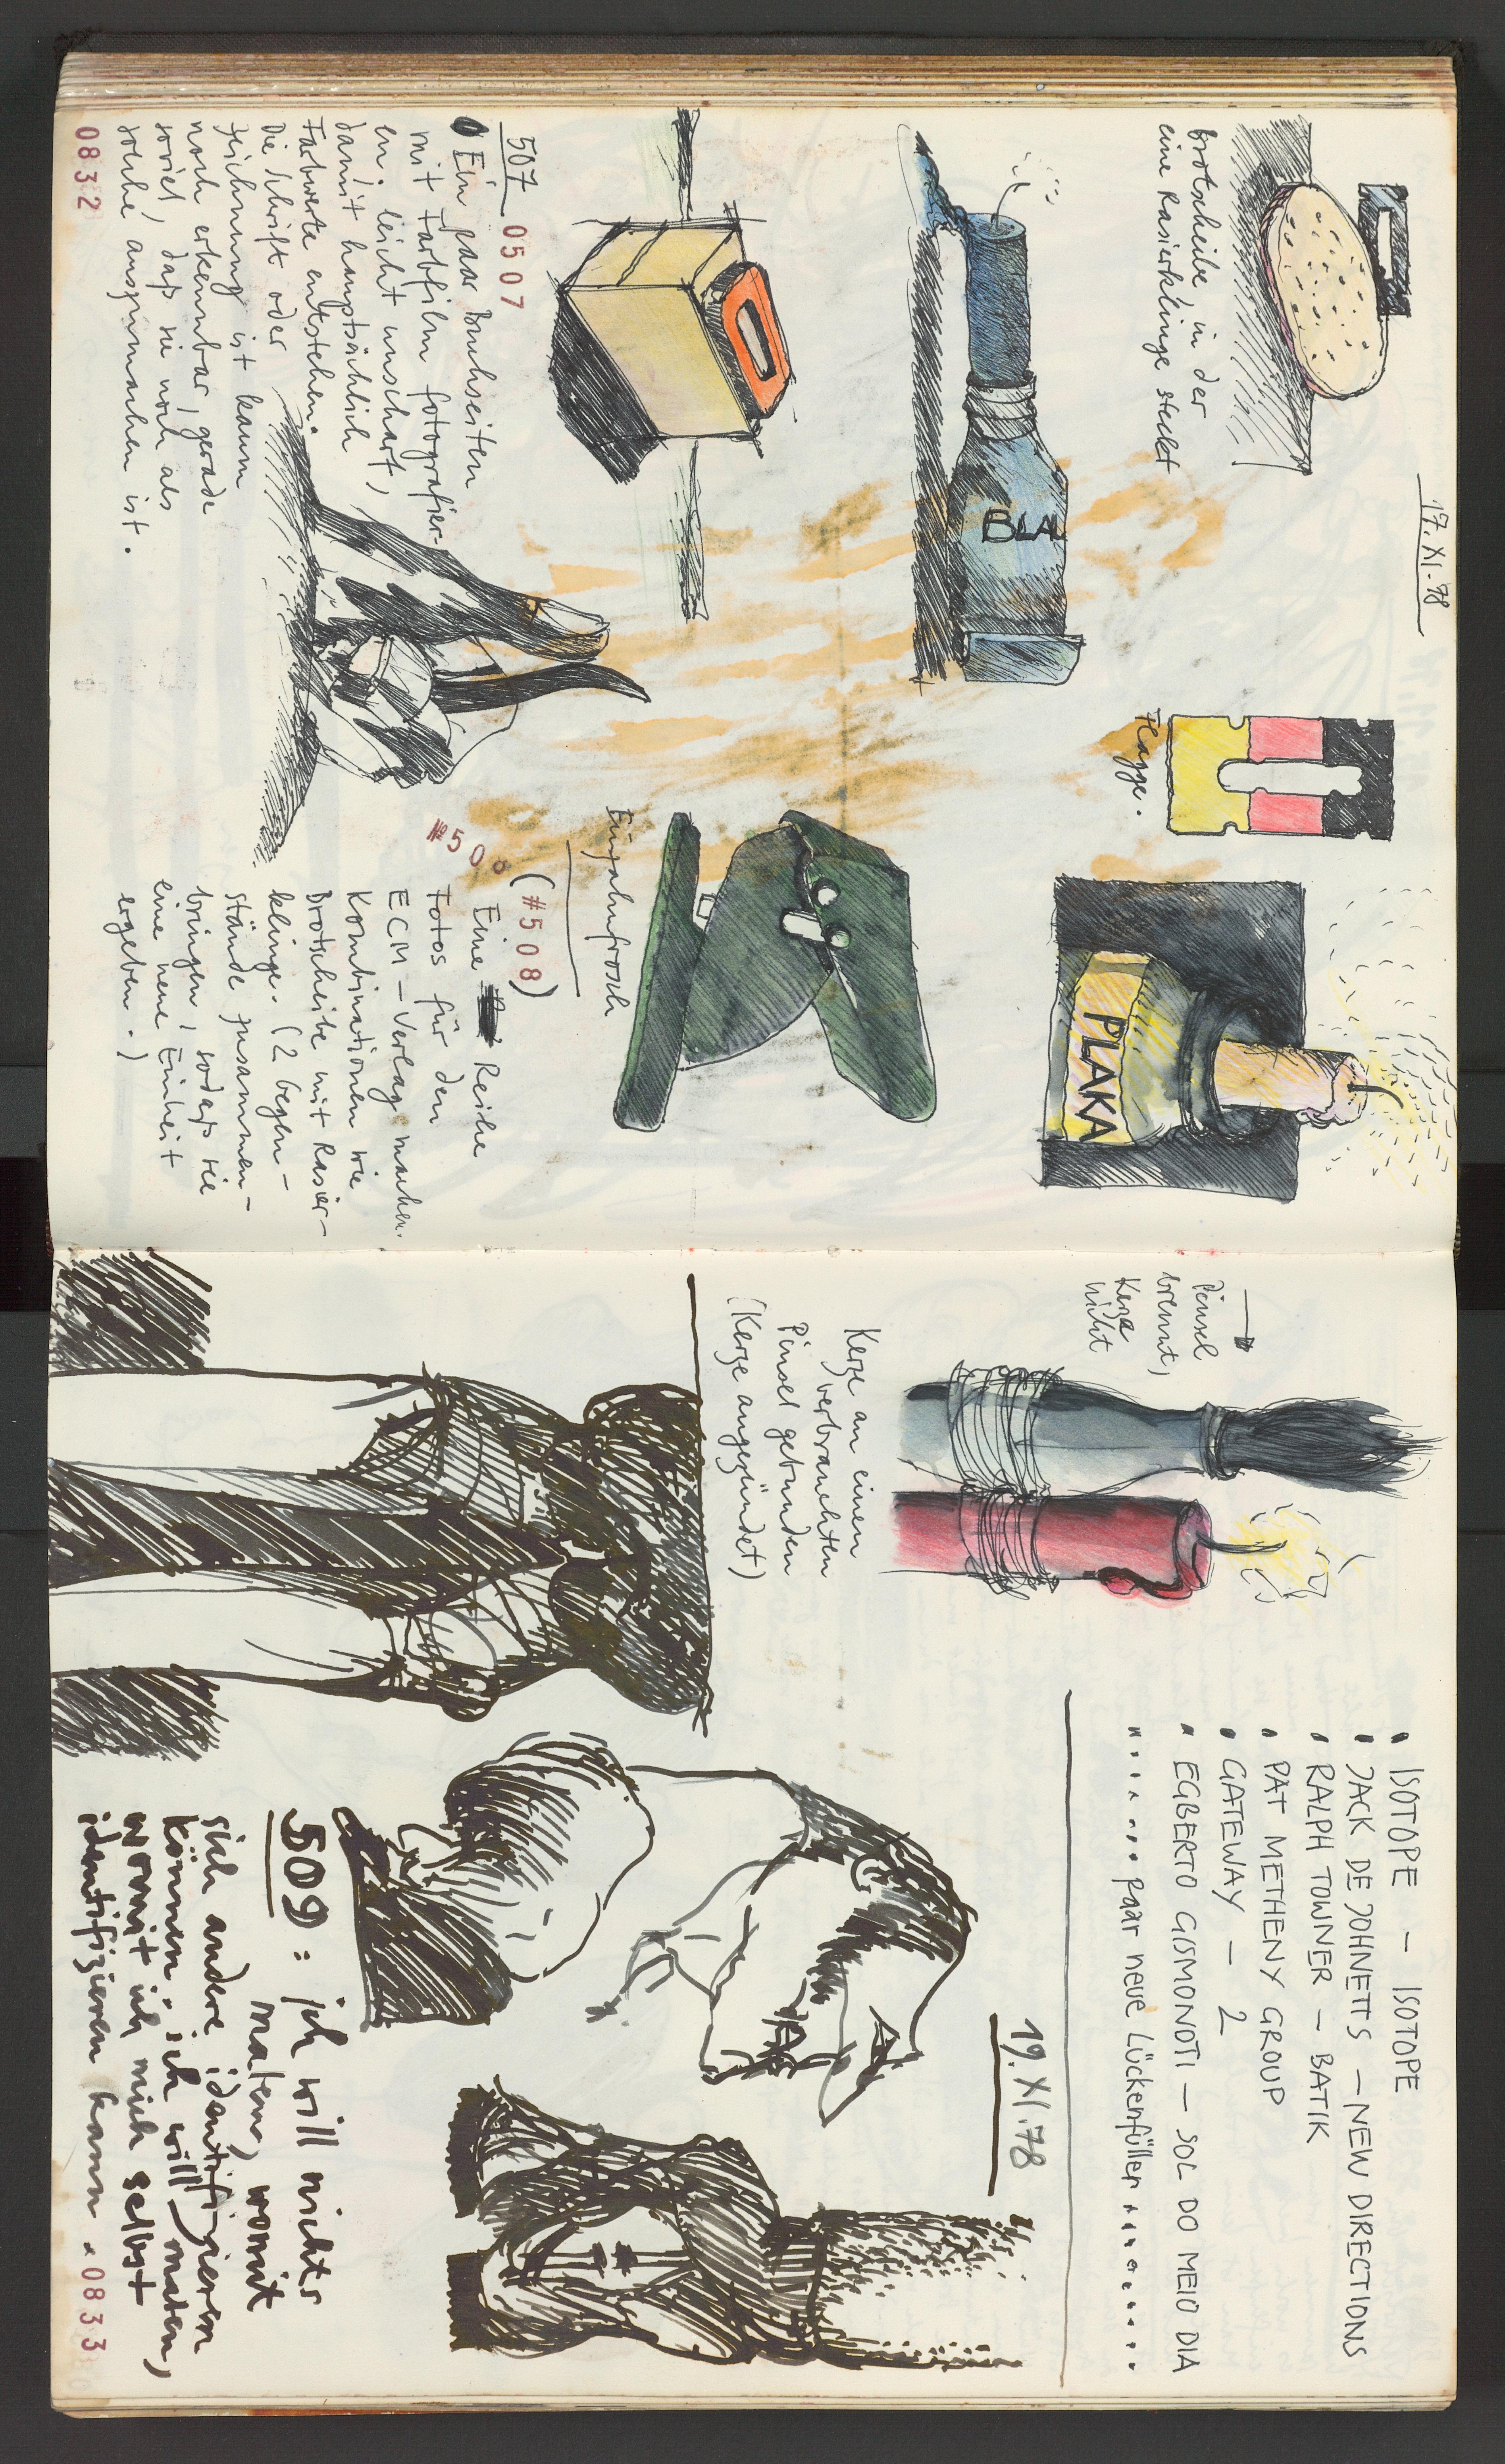 17.XI.78
Brotscheibe in der
eine Rasierklinge steckt
BLAU
Flagge.
PLAKA
Einzahnfrosch
507
0507
Ein paar Buchseiten
mit Farbfilm fotografier-
en. leicht unscharf,
damit hauptsächlich
Farbwerte entstehen.
Die Schrift oder
Zeichnung ist kaum
noch erkennbar, gerade
soviel, daß sie noch als
solche auszumachen ist.
0832
№508
(#508)
Eine Reihe
Fotos für den
ECM-Verlag machen.
Kombinationen wie
Brotscheibe mit Rasier-
klinge. (2 Gegen-
stände zusammen-
bringen, sodaß sie
eine neue Einheit
ergeben.)
→
Pinsel
brennt,
Kerze
nicht
Kerze an einen
verbrauchten
Pinsel gebunden
(Kerze angezündet)
▪ ISOTOPE - ISOTOPE
▪ JACK DE JOHNETTS - NEW DIRECTIONS
▪ RALPH TOWNER - BATIK
▪ PAT METHENY GROUP
▪ GATEWAY - 2
▪ EGBERTO GISMONOTI - SOL DO MEIO DIA
......... paar neue Lückenfüller .........
19.XI.78
509: ich will nichts
malen, womit
sich andere identifizieren
können. ich will malen,
womit ich mich selbst
identifizieren kann.
0833